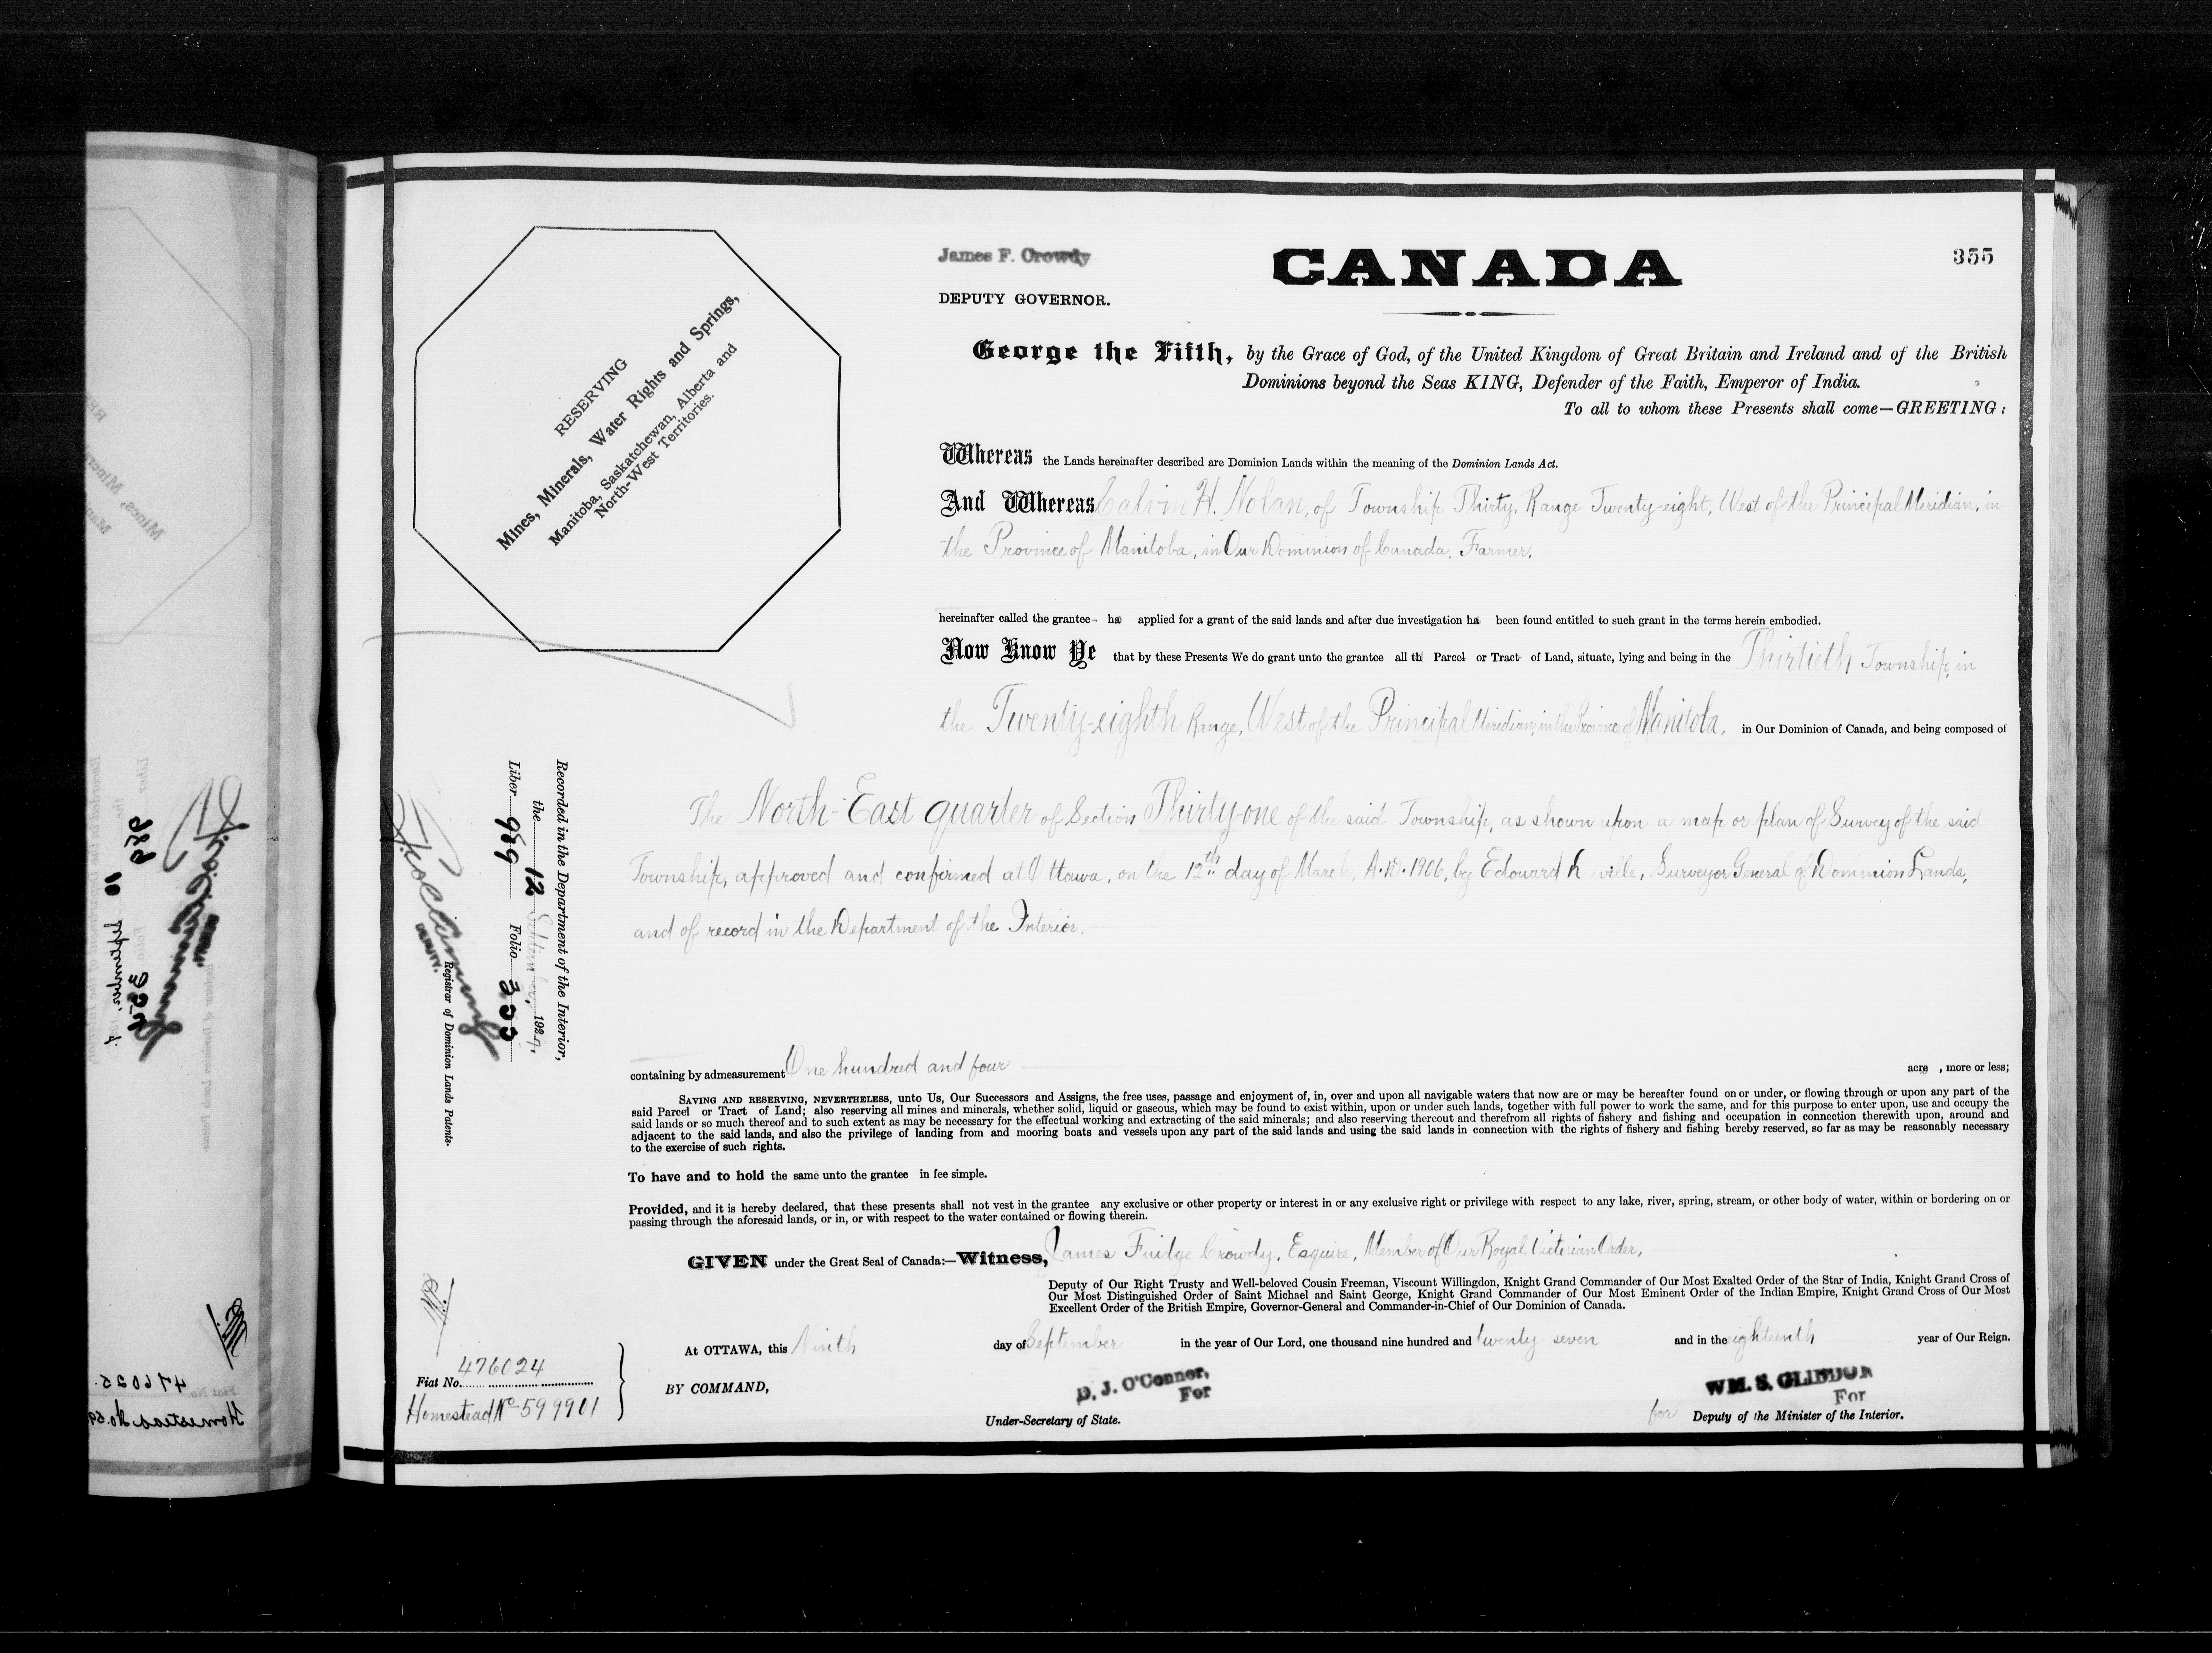 James F. Crowdy
CANADA
355
DEPUTY GOVERNOR.
George the Fifth, by the Grace of God, of the United Kingdom of Great Britain and Ireland and of the British
Dominions beyond the Seas KING, Defender of the Faith, Emperor of India.
To all to whom these Presents shall come—GREETING:
RESERVING
Mines, Minerals, Water Rights and Springs,
Manitoba, Saskatchewan, Alberta and
North-West Territories.
Whereas the Lands hereinafter described are Dominion Lands within the meaning of the Dominion Lands Act.
And Whereas Calvin H. Nolan, of Township Thirty, Range Twenty-eight, West of the Principal Meridian, in
the Province of Manitoba, in Our Dominion of Canada, Farmer,
hereinafter called the grantee ha applied for a grant of the said lands and after due investigation ha been found entitled to such grant in the terms herein embodied.
Now Know Ye that by these Presents We do grant unto the grantee all th Parcel or Tract of Land, situate, lying and being in the Thirtieth Township, in
the Twenty-eighth Range, West of the Principal Meridian, in the Province of Manitoba, in Our Dominion of Canada, and being composed of
The North-East quarter of Section Thirty-one of the said Township, as shown upon a map or plan of Survey of the said
Township, approved and confirmed at Ottawa, on the 12th day of March, A.D. 1906, by Edouard ville, Surveyor General of Dominion Lands,
and of record in the Department of the Interior.
Recorded in the Department of the Interior,
the 12 September, 192
Liber 989 Folio 355
DEPUTY.
Registrar of Dominion Lands Patents.
containing by admeasurement One hundred and four acre , more or less;
SAVING AND RESERVING, NEVERTHELESS, unto Us, Our Successors and Assigns, the free uses, passage and enjoyment of, in, over and upon all navigable waters that now are or may be hereafter found on or under, or flowing through or upon any part of the
said Parcel or Tract of Land; also reserving all mines and minerals, whether solid, liquid or gaseous, which may be found to exist within, upon or under such lands, together with full power to work the same, and for this purpose to enter upon, use and occupy the
said lands or so much thereof and to such extent as may be necessary for the effectual working and extracting of the said minerals; and also reserving thereout and therefrom all rights of fishery and fishing and occupation in connection therewith upon, around and
adjacent to the said lands, and also the privilege of landing from and mooring boats and vessels upon any part of the said lands and using the said lands in connection with the rights of fishery and fishing hereby reserved, so far as may be reasonably necessary
to the exercise of such rights.
To have and to hold the same unto the grantee in fee simple.
Provided, and it is hereby declared, that these presents shall not vest in the grantee any exclusive or other property or interest in or any exclusive right or privilege with respect to any lake, river, spring, stream, or other body of water, within or bordering on or
passing through the aforesaid lands, or in, or with respect to the water contained or flowing therein.
GIVEN under the Great Seal of Canada:—Witness, James Fuidge Crowdy, Esquire, Member of Our Royal Victorian Order,
Deputy of Our Right Trusty and Well-beloved Cousin Freeman, Viscount Willingdon, Knight Grand Commander of Our Most Exalted Order of the Star of India, Knight Grand Cross of
Our Most Distinguished Order of Saint Michael and Saint George, Knight Grand Commander of Our Most Eminent Order of the Indian Empire, Knight Grand Cross of Our Most
Excellent Order of the British Empire, Governor-General and Commander-in-Chief of Our Dominion of Canada.
At OTTAWA, this Ninth day of September in the year of Our Lord, one thousand nine hundred and twenty seven and in the eighteenth year of Our Reign.
Fiat No. 476024
Homestead No 599901
BY COMMAND,
D. J. O'Connor,
For
Under-Secretary of State.
WM. S. GLIDDON
For
for Deputy of the Minister of the Interior.